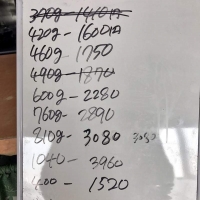 390g - 1440인
420g - 1600인
460g 1750
490g - 1870
600g - 2280
760g - 2890
810g - 3080 3080
1040 - 3960
400 - 1520